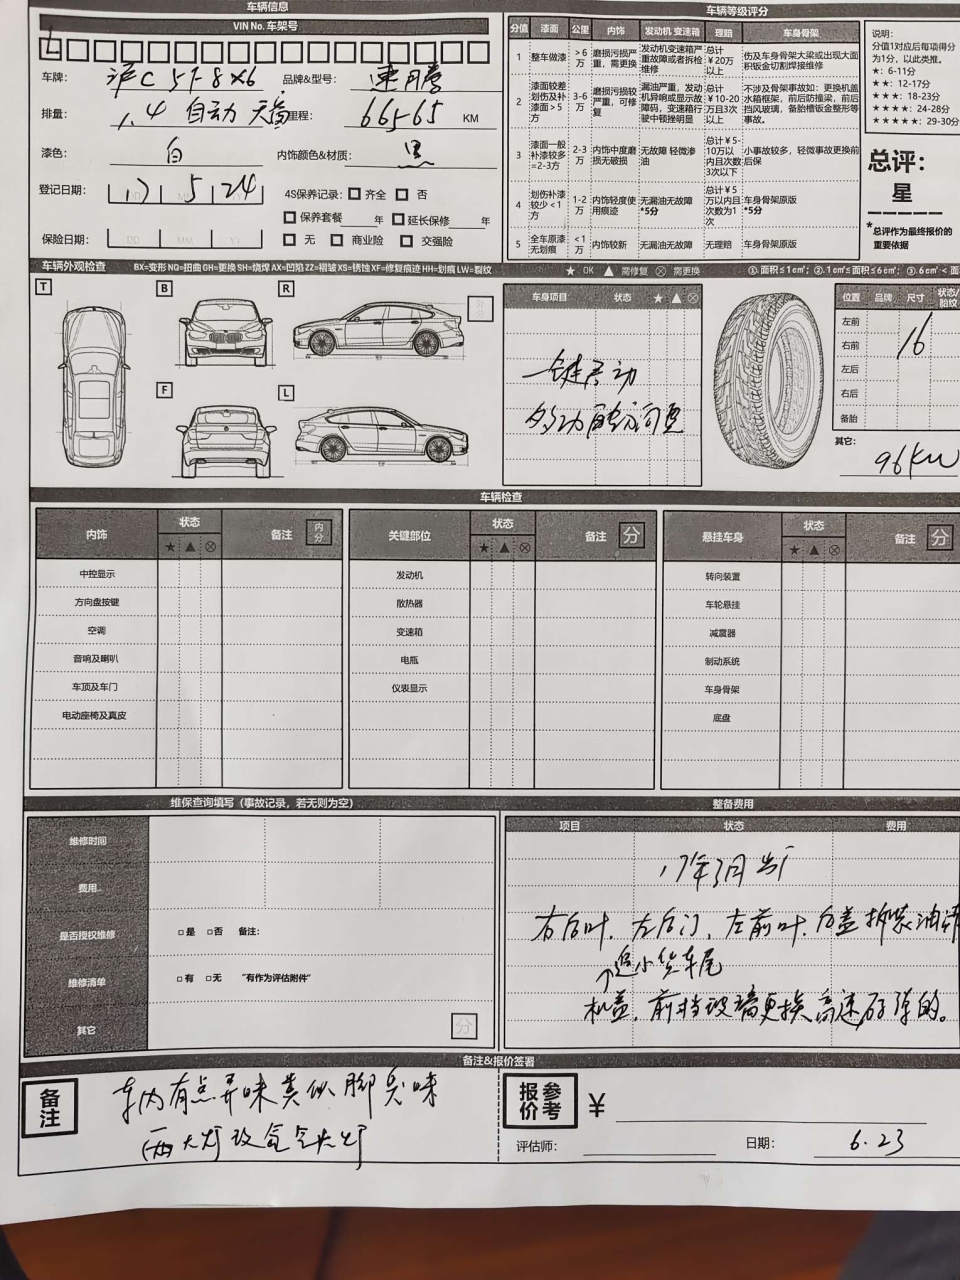 车辆信息
车辆等级评分
VIN No. 车架号
L
车牌： 沪C 5F8X6 品牌&型号： 速腾
排量： 1.4 自动 天窗 里程： 66565 KM
漆色： 白 内饰颜色&材质： 黑
登记日期： 17 5 24 4S保养记录： 齐全 否
保养套餐 年 延长保修 年
保险日期： DD MM YY 无 商业险 交强险
分值 漆面 公里 内饰 发动机 变速箱 理赔 车身骨架
1 整车做漆 >6万 磨损污损严重，需更换 发动机变速箱严重故障或者拆检维修 总计￥20万以上 伤及车身骨架大梁或出现大面积钣金切割焊接维修
2 漆面较差划伤及补漆面＞5方 3-6万 磨损污损较严重，可修复 漏油严重，发动机异响或显示故障码，变速箱行驶中顿挫明显 总计￥10-20万且3次以上 不涉及骨架事故如：更换机盖水箱框架，前后防撞梁，前后挡风玻璃，备胎槽钣金整形等事故。
3 漆面一般补漆较多=2-3方 2-3万 内饰中度磨损无破损 无故障 轻微渗油 总计￥5-10万以内且次数3次以下 小事故较多，轻微事故更换前后保
4 划伤补漆较少<1方 1-2万 内饰轻度使用痕迹 无漏油无故障 *5分 总计￥5万以内且次数为1次 车身骨架原版 *5分
5 全车原漆无划痕 <1万 内饰较新 无漏油无故障 无理赔 车身骨架原版
说明：
分值1对应后每项得分为1分，以此类推。
★：6-11分
★★：12-17分
★★★：18-23分
★★★★：24-28分
★★★★★：29-30分
总评：
星
*总评作为最终报价的重要依据
车辆外观检查 BX=变形 NQ=扭曲 GH=更换 SH=烧焊 AX=凹陷 ZZ=褶皱 XS=锈蚀 XF=修复痕迹 HH=划痕 LW=裂纹
★ OK ▲ 需修复 ⊗ 需更换
①. 面积≤1c㎡；②. 1c㎡≤面积≤6c㎡；③. 6c㎡＜面
T B R
F L
车身项目 状态 ★ ▲ ⊗
一键启动
位置 品牌 尺寸 状态/胎纹
左前
右前
左后
右后
备胎
16
其它：
96KW
车辆检查
内饰 状态 备注 内分
★ ▲ ⊗
中控显示
方向盘按键
空调
音响及喇叭
车顶及车门
电动座椅及真皮
关键部位 状态 备注 分
★ ▲ ⊗
发动机
散热器
变速箱
电瓶
仪表显示
悬挂车身 状态 备注 分
★ ▲ ⊗
转向装置
车轮悬挂
减震器
制动系统
车身骨架
底盘
维保查询填写（事故记录，若无则为空）
维修时间
费用
是否授权维修 □是 □否 备注：
维修清单 □有 □无 “有作为评估附件”
其它 分
整备费用
项目 状态 费用
17年3月出厂
右后叶．左后门．左前叶．后盖拆装油漆
↑追小货车尾
机盖．前挡玻璃更换 高速石弹的。
备注&报价签署
备注
车内有点异味类似脚臭味
两大灯改氙气大灯
参考报价 ￥
评估师： 日期： 6.23